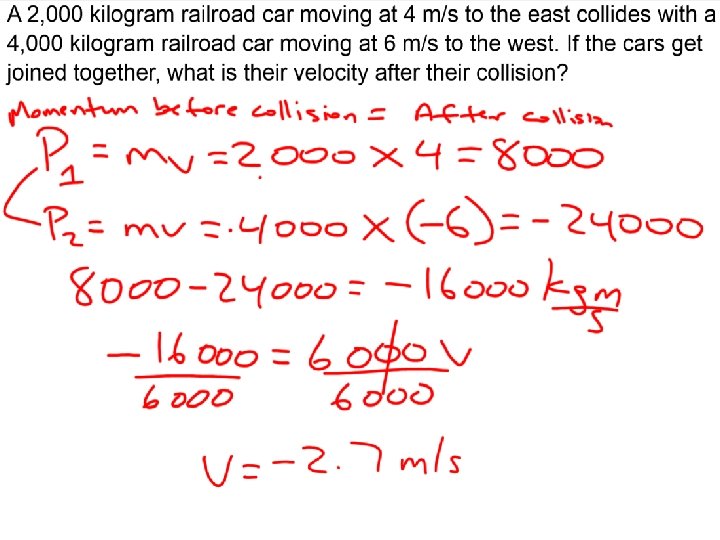 A 2,000 kilogram railroad car moving at 4 m/s to the east collides with a
4,000 kilogram railroad car moving at 6 m/s to the west. If the cars get
joined together, what is their velocity after their collision?
Momentum before collision = After collision
P1 = mv = 2.000 × 4 = 8000
P2 = mv = .4000 × (-6) = - 24000
8000 - 24000 = - 16000 kgm/s
- 16000/6000 = 6000 v/6000
V = - 2.7 m/s